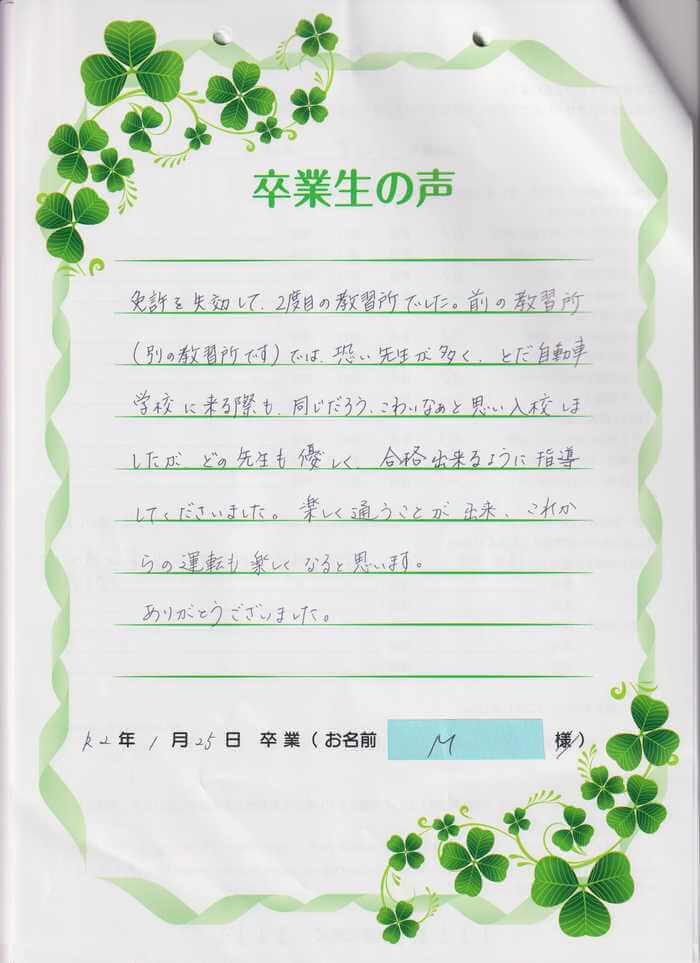 卒業生の声
免許を失効して、2度目の教習所でした。前の教習所
(別の教習所です)では、恐い先生が多く、とだ自動車
学校に来る際も、同じだろう、こわいなぁと思い入校しま
したが、どの先生も優しく、合格出来るように指導
してくださいました。楽しく通うことが出来、これか
らの運転も楽しくなると思います。
ありがとうございました。
R2年 1月25日 卒業(お名前 M 様)